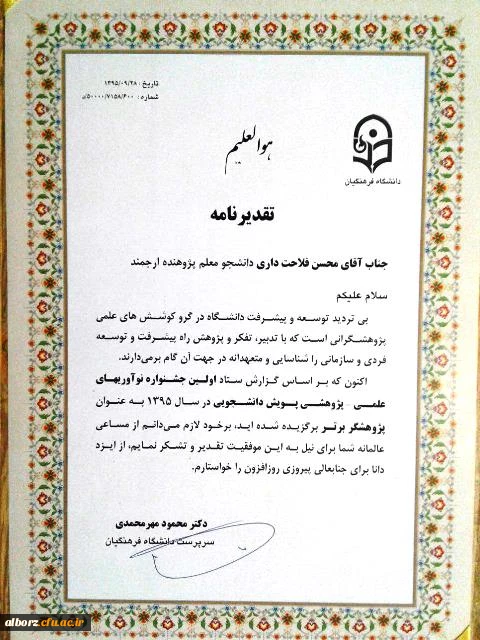 تاریخ : ۱۳۹۵/۰۹/۲۸
شماره : ۵۰۰۰۰/۷۱۵۸/۶۰۰/د
هوالعلیم
دانشگاه فرهنگیان
تقدیرنامه
جناب آقای محسن فلاحت داری دانشجو معلم پژوهنده ارجمند
سلام علیکم
بی تردید توسعه و پیشرفت دانشگاه در گرو کوشش های علمی
پژوهشگرانی است که با تدبیر، تفکر و پژوهش راه پیشرفت و توسعه
فردی و سازمانی را شناسایی و متعهدانه در جهت آن گام برمی‌دارند.
اکنون که بر اساس گزارش ستاد اولین جشنواره نوآوریهای
علمی - پژوهشی پویش دانشجویی در سال ۱۳۹۵ به عنوان
پژوهشگر برتر برگزیده شده اید، برخود لازم می‌دانم از مساعی
عالمانه شما برای نیل به این موفقیت تقدیر و تشکر نمایم، از ایزد
دانا برای جنابعالی پیروزی روزافزون را خواستارم.
دکتر محمود مهرمحمدی
سرپرست دانشگاه فرهنگیان
alborz.cfu.ac.ir